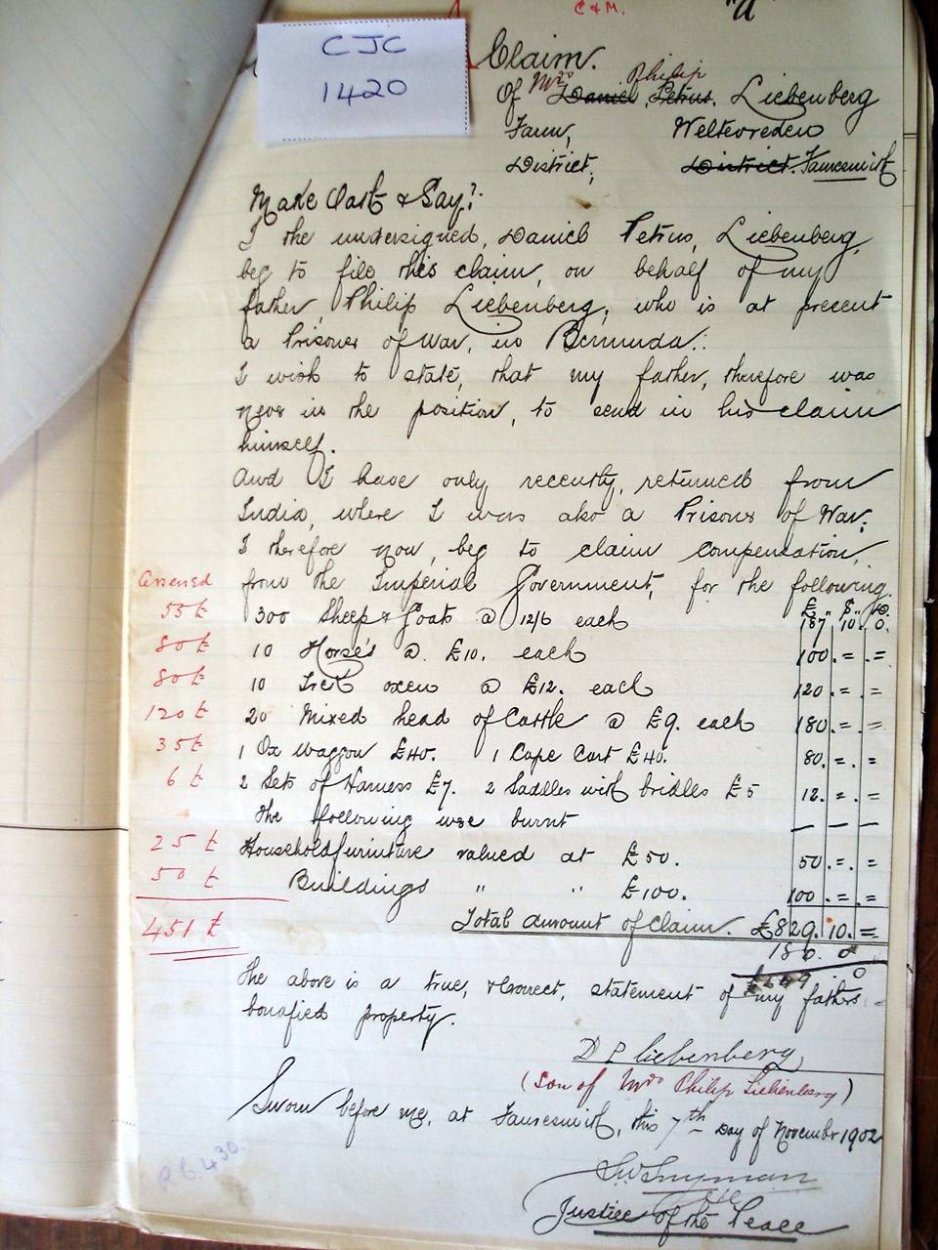 C & M.
"U"
CJC
1420
Claim.
Of Mrs ~~Daniel Petrus~~ Philip Liebenberg
Farm, Weltevreden
District, ~~District.~~ Fauresmith
Make Oath & Say:
I the undersigned, Daniel Petrus, Liebenberg,
beg to file this claim, on behalf of my
father, Philip Liebenberg, who is at present
a Prisoner of War, in Bermuda.:
I wish to state, that my father, therefore was
never in the position, to send in his claim
himself.
And I have only recently, returned from
India, where I was also a Prisoner of War;
I therefore now, beg to claim compensation,
assessed from the Imperial Government, for the following.
£ .. S .. D.
55 £ 300 Sheep & Goats @ 12/6 each 187. 10. 0.
80 £ 10 Horse's @. £10. each 100. = . =
80 £ 10 Trek oxen @ £12. each 120. = . =
120 £ 20 Mixed head of Cattle @ £9. each 180. = . =
35 £ 1 Ox Waggon £40. 1 Cape Cart £40. 80. = . =
6 £ 2 Sets of Harness £7. 2 Saddles with bridles £5 12. = . =
The following was burnt — — —
25 £ Household furniture valued at £50. 50. = . =
50 £ Buildings " " £100. 100. = . =
451 £ Total amount of Claim. £829. 10. =
180. 0
£649 0
The above is a true, & correct, statement of my fathers =
bonafied property.
D P Liebenberg,
(Son of Mrs Philip Liebenberg)
Sworn before me, at Fauresmith, this 7th Day of November 1902
Snyman
Justice of the Peace
R.C. 430.